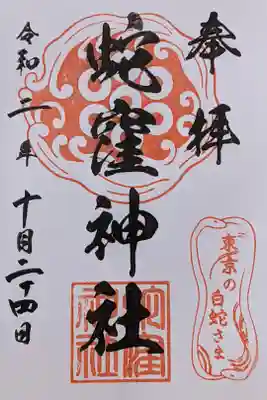 奉拝
蛇窪神社
令和二年十月二十四日
東京の
白蛇さま
蛇窪神社